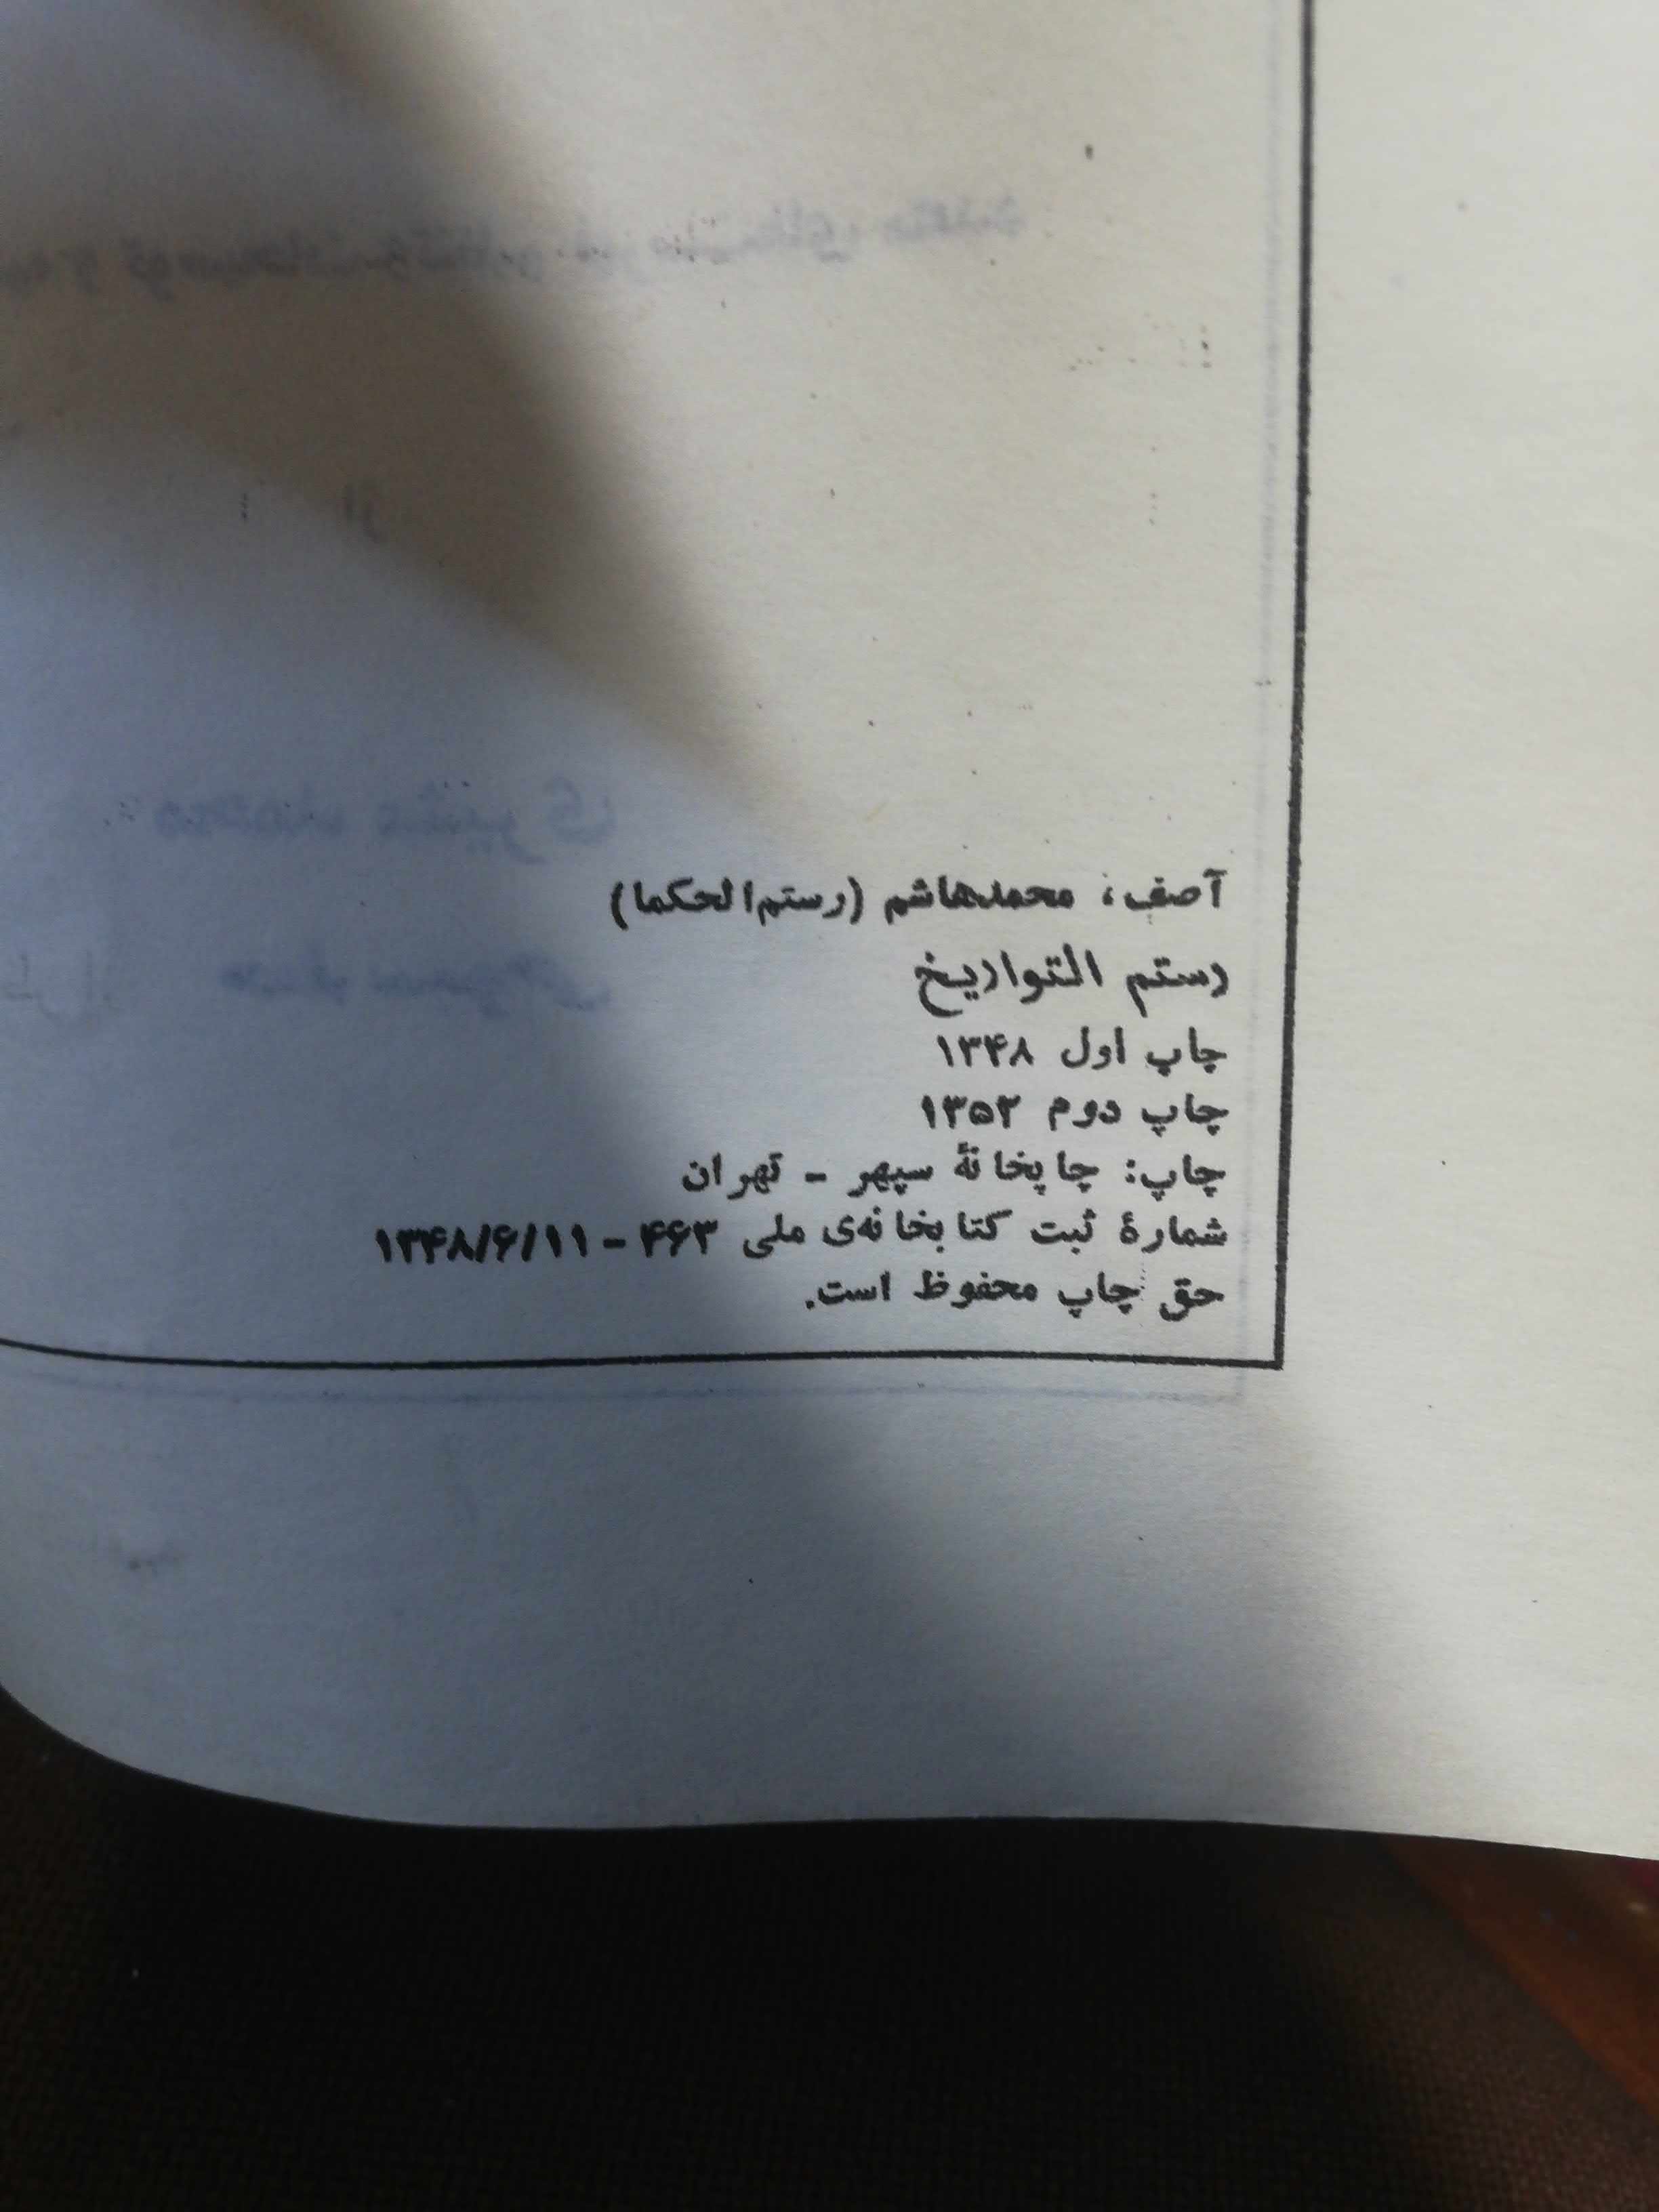 آصف، محمدهاشم (رستم‌الحکما)
رستم التواریخ
چاپ اول ۱۳۴۸
چاپ دوم ۱۳۵۲
چاپ: چاپخانهٔ سپهر - تهران
شمارهٔ ثبت کتابخانه‌ی ملی ۴۶۳ - ۱۳۴۸/۶/۱۱
حق چاپ محفوظ است.